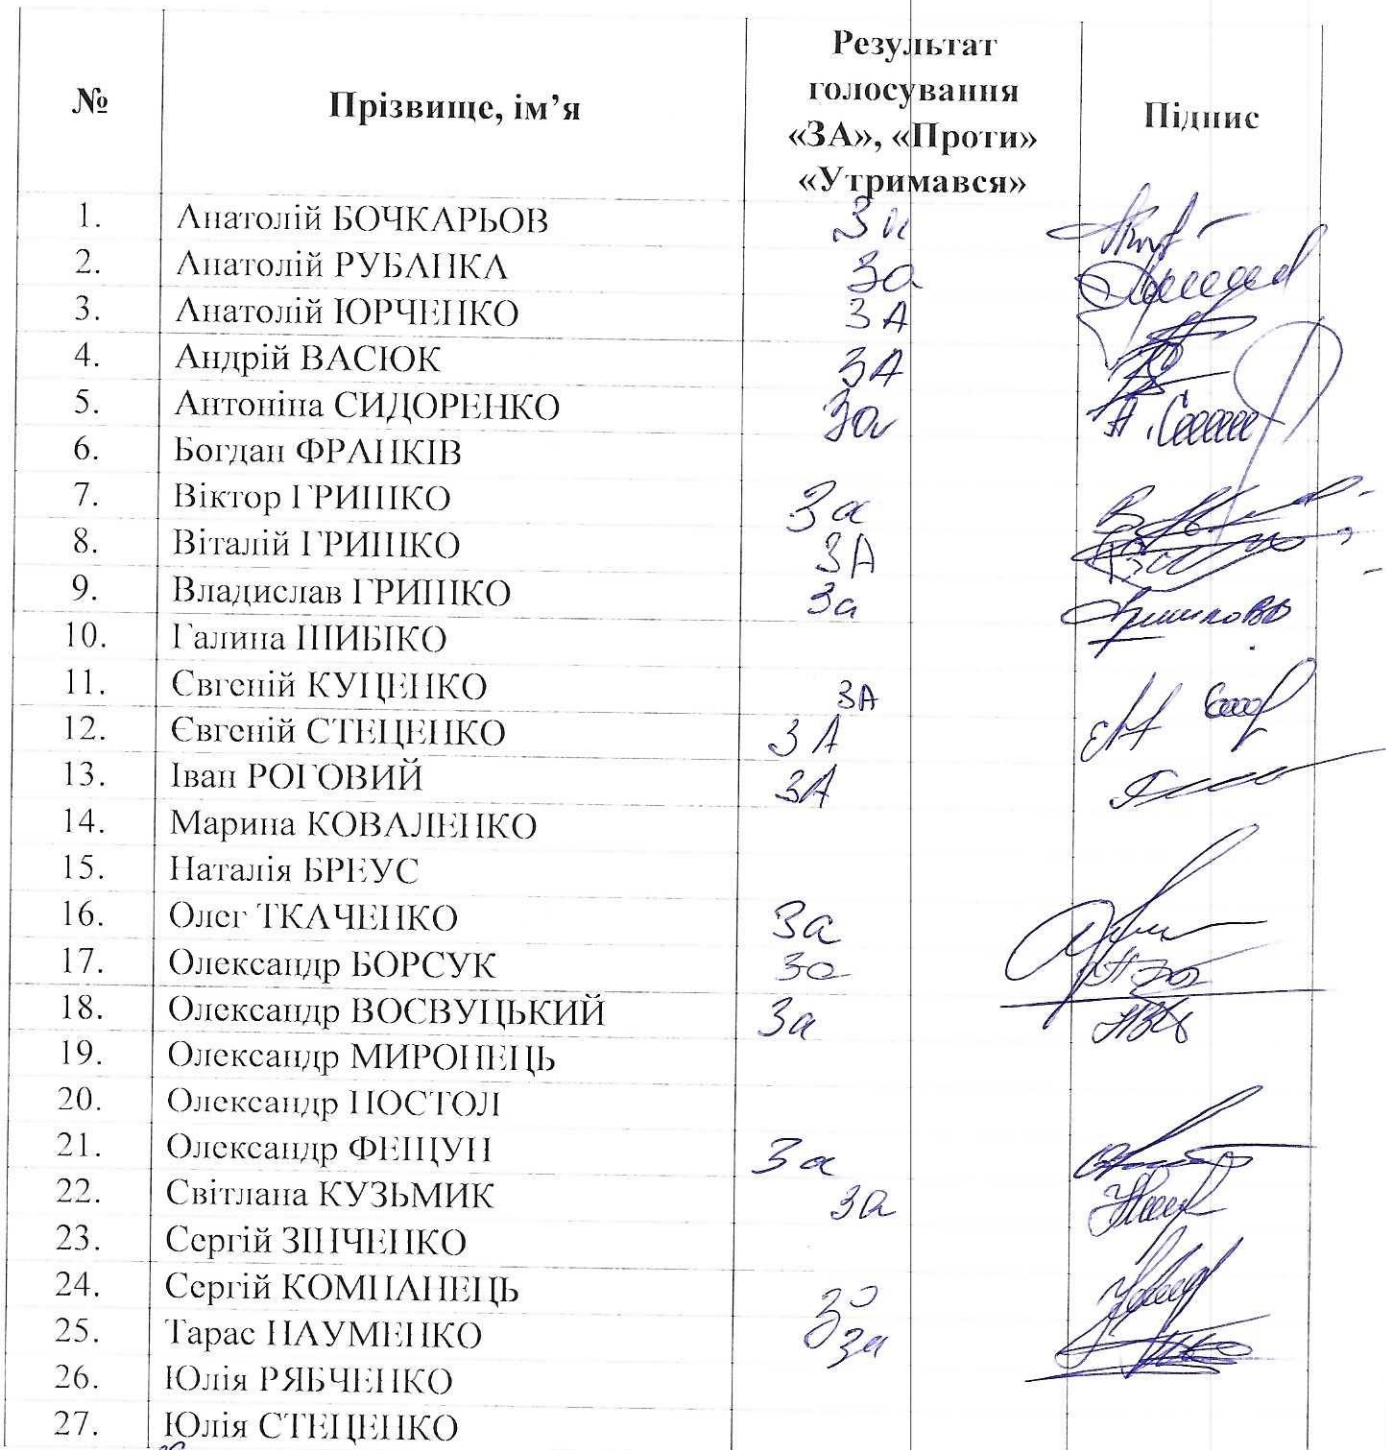 № Прізвище, ім’я Результат голосування «ЗА», «Проти» «Утримався» Підпис
1. Анатолій БОЧКАРЬОВ За
2. Анатолій РУБАНКА За
3. Анатолій ЮРЧЕНКО ЗА
4. Андрій ВАСЮК ЗА
5. Антоніна СИДОРЕНКО За
6. Богдан ФРАНКІВ
7. Віктор ГРИШКО За
8. Віталій ГРИШКО ЗА
9. Владислав ГРИШКО За
10. Галина ШИБІКО
11. Євгеній КУЦЕНКО ЗА
12. Євгеній СТЕЦЕНКО ЗА
13. Іван РОГОВИЙ ЗА
14. Марина КОВАЛЕНКО
15. Наталія БРЕУС
16. Олег ТКАЧЕНКО За
17. Олександр БОРСУК За
18. Олександр ВОЄВУЦЬКИЙ За
19. Олександр МИРОНЕЦЬ
20. Олександр ПОСТОЛ
21. Олександр ФЕЩУН За
22. Світлана КУЗЬМИК За
23. Сергій ЗІНЧЕНКО
24. Сергій КОМПАНЕЦЬ За
25. Тарас НАУМЕНКО За
26. Юлія РЯБЧЕНКО
27. Юлія СТЕЦЕНКО